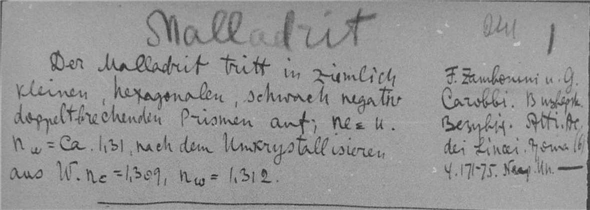 Malladrit
241 1
Der Malladrit tritt in ziemlich
kleinen, hexagonalen, schwach negativ
doppeltbrechenden Prismen auf; nε u.
nω = Ca. 1,31, nach dem Umkrystallisieren
aus W. nε = 1,309, nω = 1,312.
F. Zambonini u. G.
Carobbi.
Atti. Ac.
dei Lincei. Roma (6)
4. 171-75. Neap. Un. —